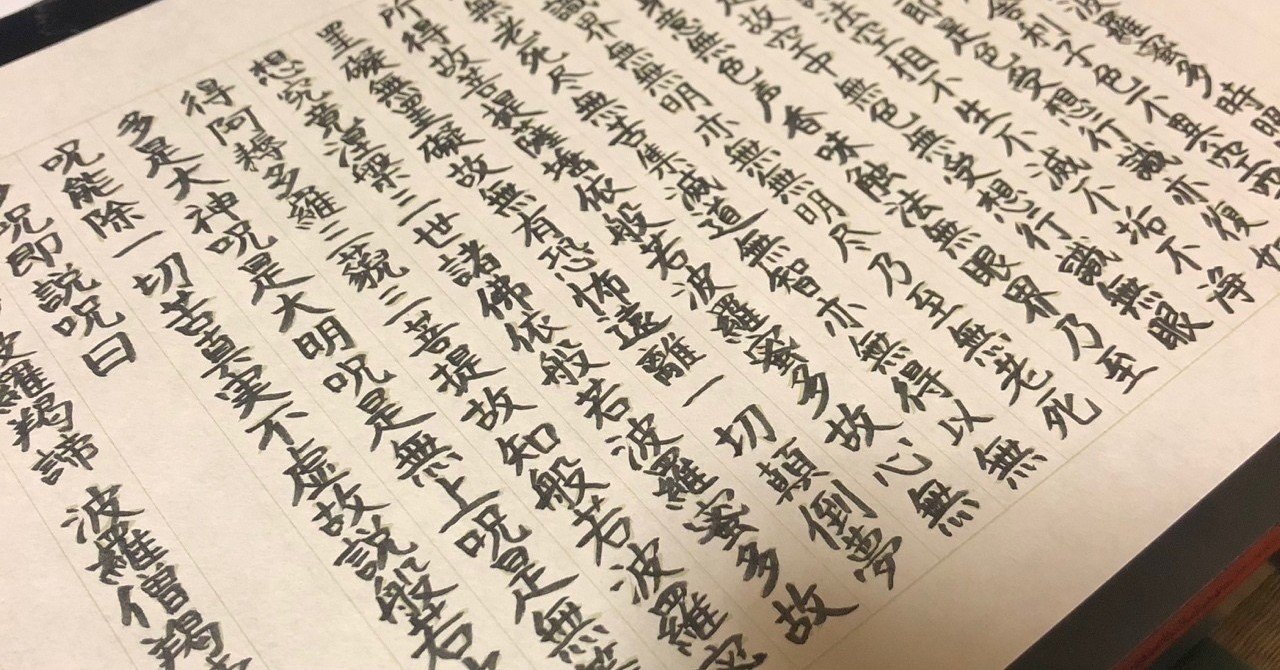 波羅蜜多時照
舎利子色不異空空
即是色受想行識亦復如
法空相不生不滅不垢不浄
是故空中無色無受想行識無眼
身意無色声香味触法無眼界乃至
識界無無明亦無無明尽乃至無老死
無老死尽無苦集滅道無智亦無得以無
所得故菩提薩埵依般若波羅蜜多故心無
罣礙無罣礙故無有恐怖遠離一切顛倒夢
想究竟涅槃三世諸佛依般若波羅蜜多故
得阿耨多羅三藐三菩提故知般若波羅蜜
多是大神呪是大明呪是無上呪是無等
呪能除一切苦真実不虚故説般若
多呪即説呪曰
波羅羯諦 波羅僧羯